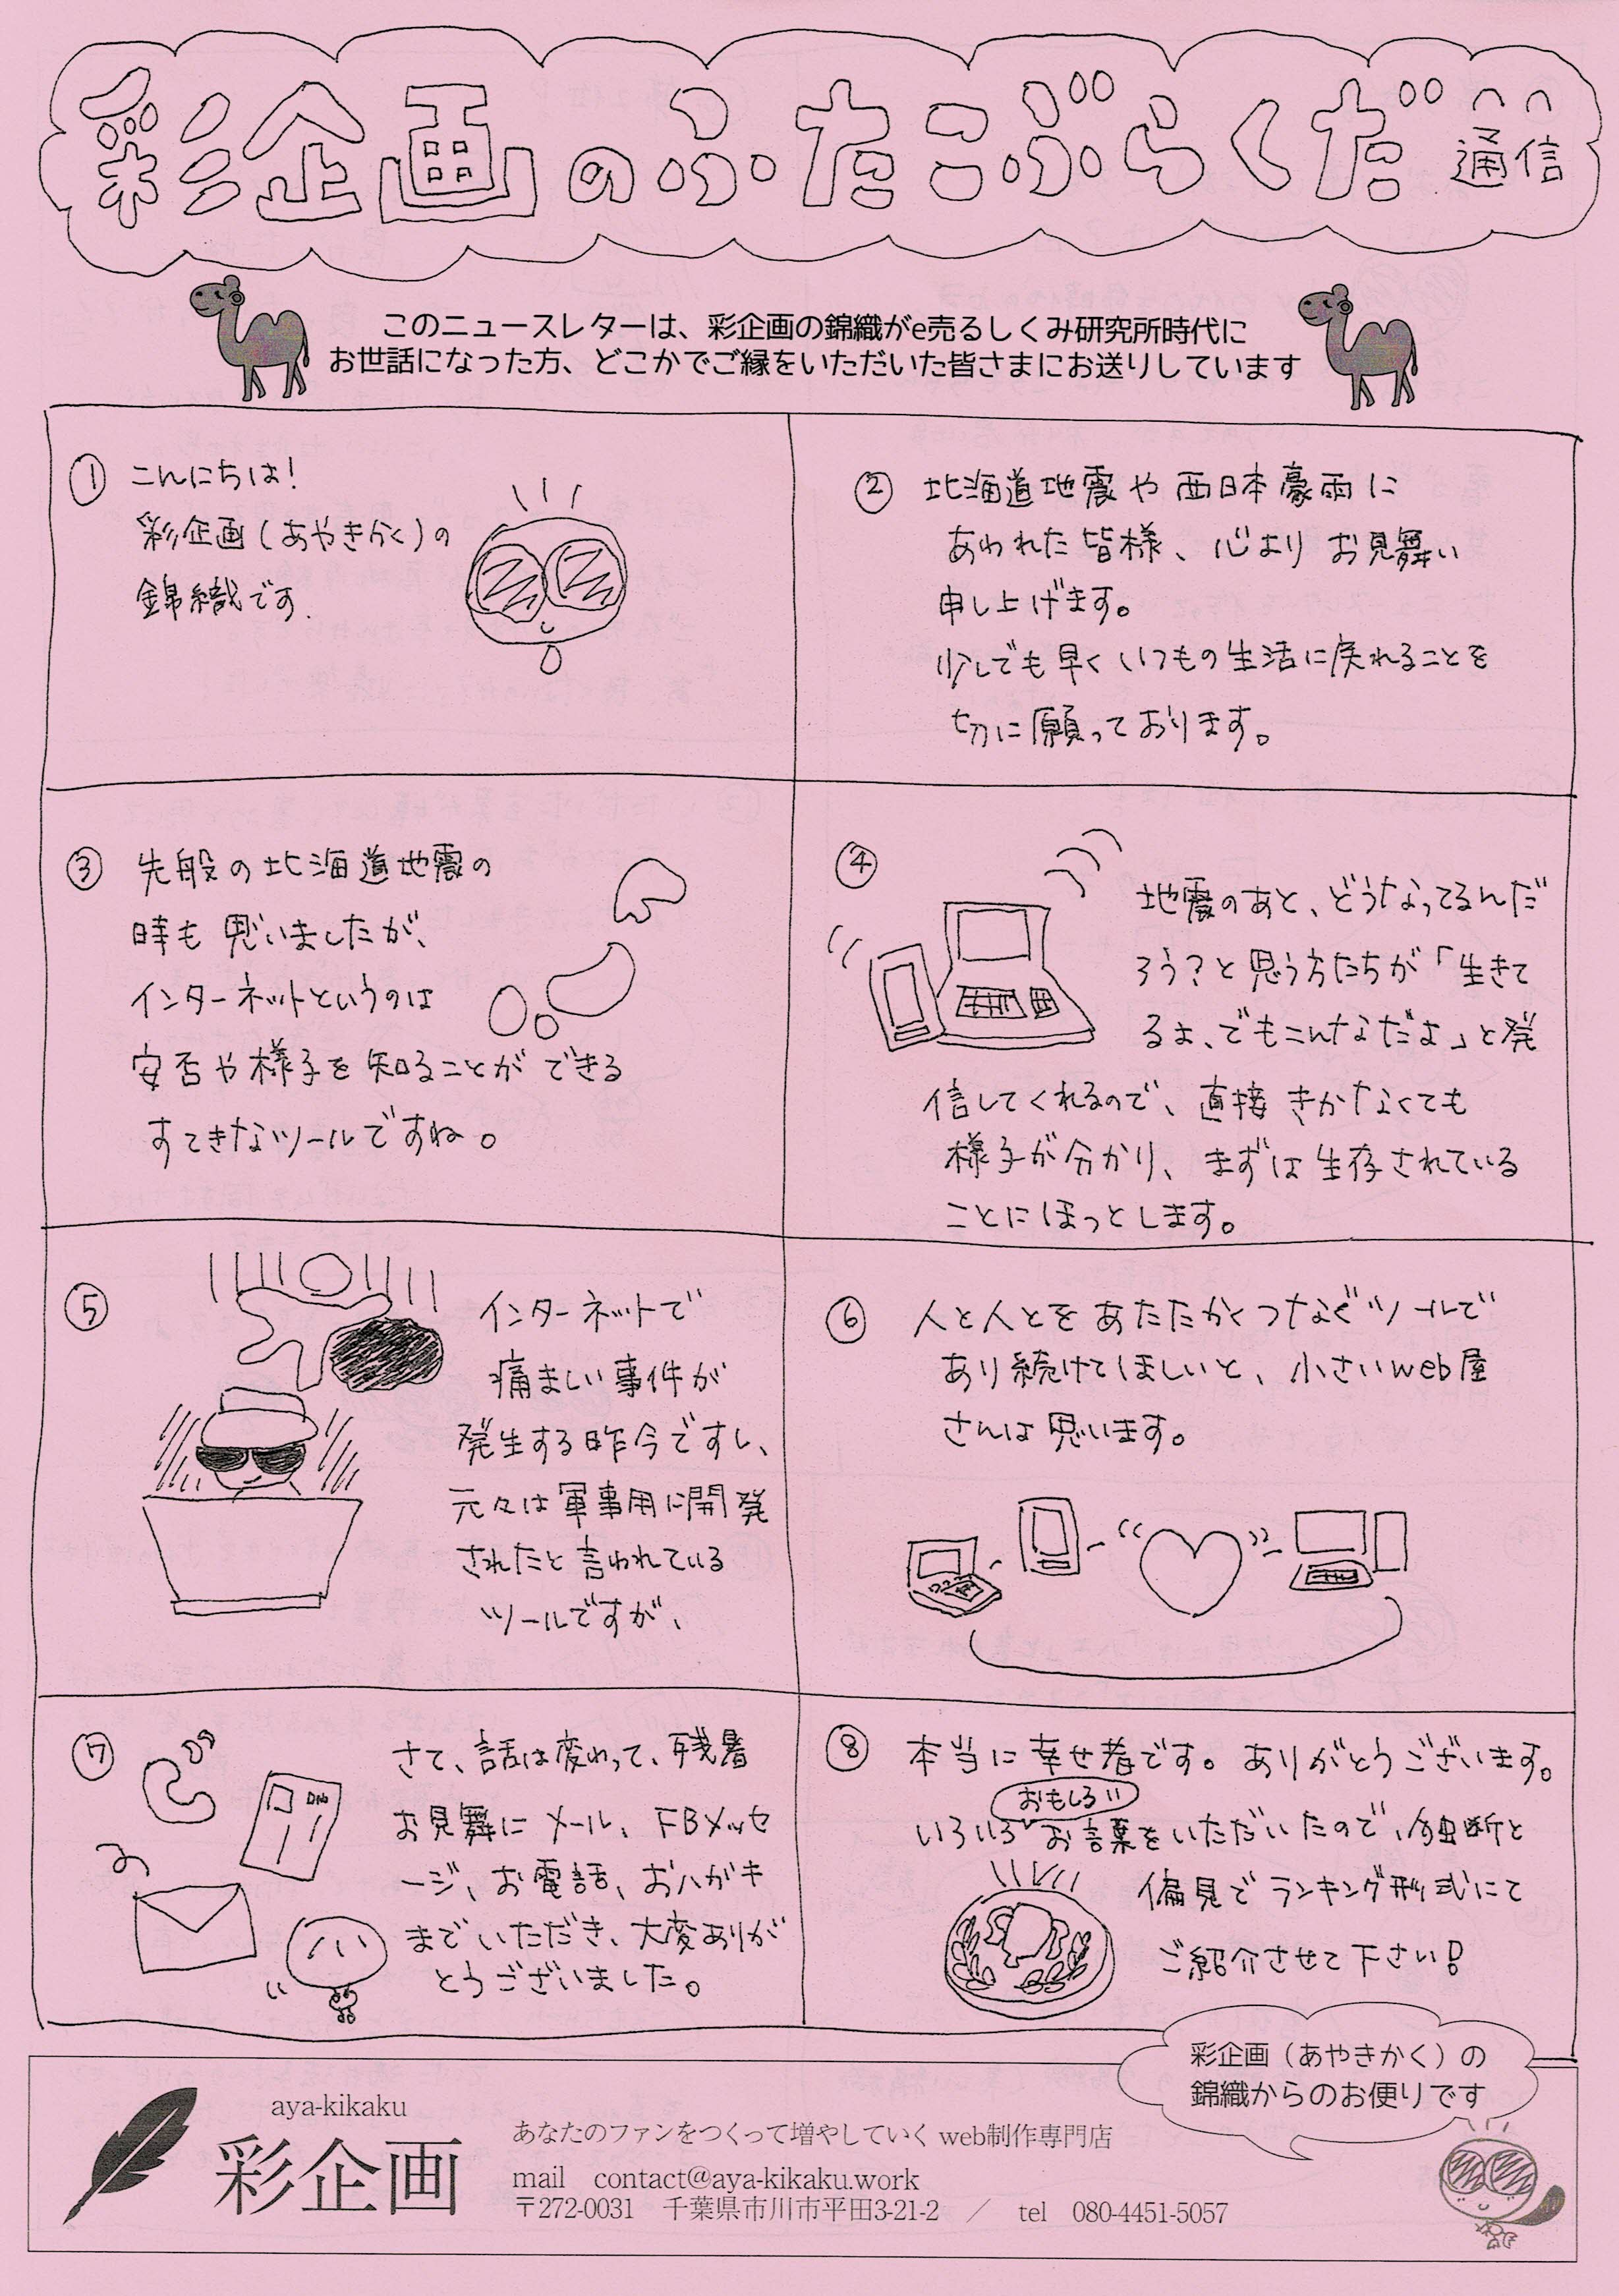 彩企画のふたこぶらくだ通信
このニュースレターは、彩企画の錦織がe売るしくみ研究所時代に
お世話になった方、どこかでご縁をいただいた皆さまにお送りしています
① こんにちは！
彩企画（あやきかく）の
錦織です.
② 北海道地震や西日本豪雨に
あわれた皆様、心より お見舞い
申し上げます。
少しでも早くいつもの生活に戻れることを
切に願っております。
③ 先般の北海道地震の
時も思いましたが、
インターネットというのは
安否や様子を知ることができる
すてきなツールですね。
④ 地震のあと、どうなってるんだ
ろう？と思う方たちが「生きて
るよ、でもこんなだよ」と発
信してくれるので、直接きかなくても
様子が分かり、まずは生存されている
ことにほっとします。
⑤ インターネットで
痛ましい事件が
発生する昨今ですし、
元々は軍事用に開発
されたと言われている
ツールですが、
⑥ 人と人とをあたたかくつなぐツールで
あり続けてほしいと、小さいweb屋
さんは思います。
⑦ さて、話は変わって、残暑
お見舞にメール、FBメッセ
ージ、お電話、おハガキ
までいただき、大変ありが
とうございました。
⑧ 本当に幸せ者です。ありがとうございます。
おもしろい
いろいろお言葉をいただいたので、独断と
偏見でランキング形式にて
ご紹介させて下さい！
彩企画（あやきかく）の
錦織からのお便りです
aya-kikaku
彩企画
あなたのファンをつくって増やしていく web制作専門店
mail contact@aya-kikaku.work
〒272-0031 千葉県市川市平田3-21-2 ／ tel 080-4451-5057